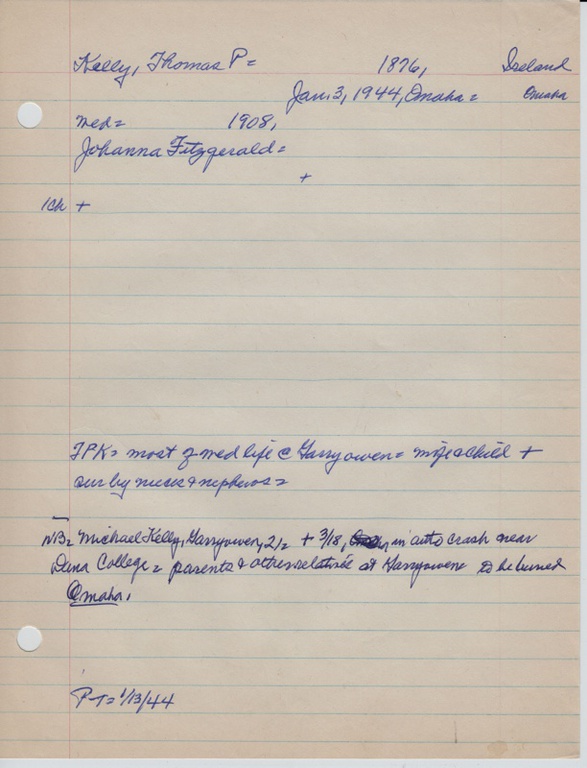 Kelly, Thomas P= 1876, Ireland
Jan. 3, 1944, Omaha= Omaha
med= 1908,
Johanna Fitzgerald=
+
1ch +
TPK= most of med life @ Garryowen= wife & child +
sur by nieces & nephews=
NB= Michael Kelly, Garryowen, + 3/18, in auto crash near
Dana College= parents & other relatives at Garryowen to be buried
Omaha.
P-T= 1/13/44